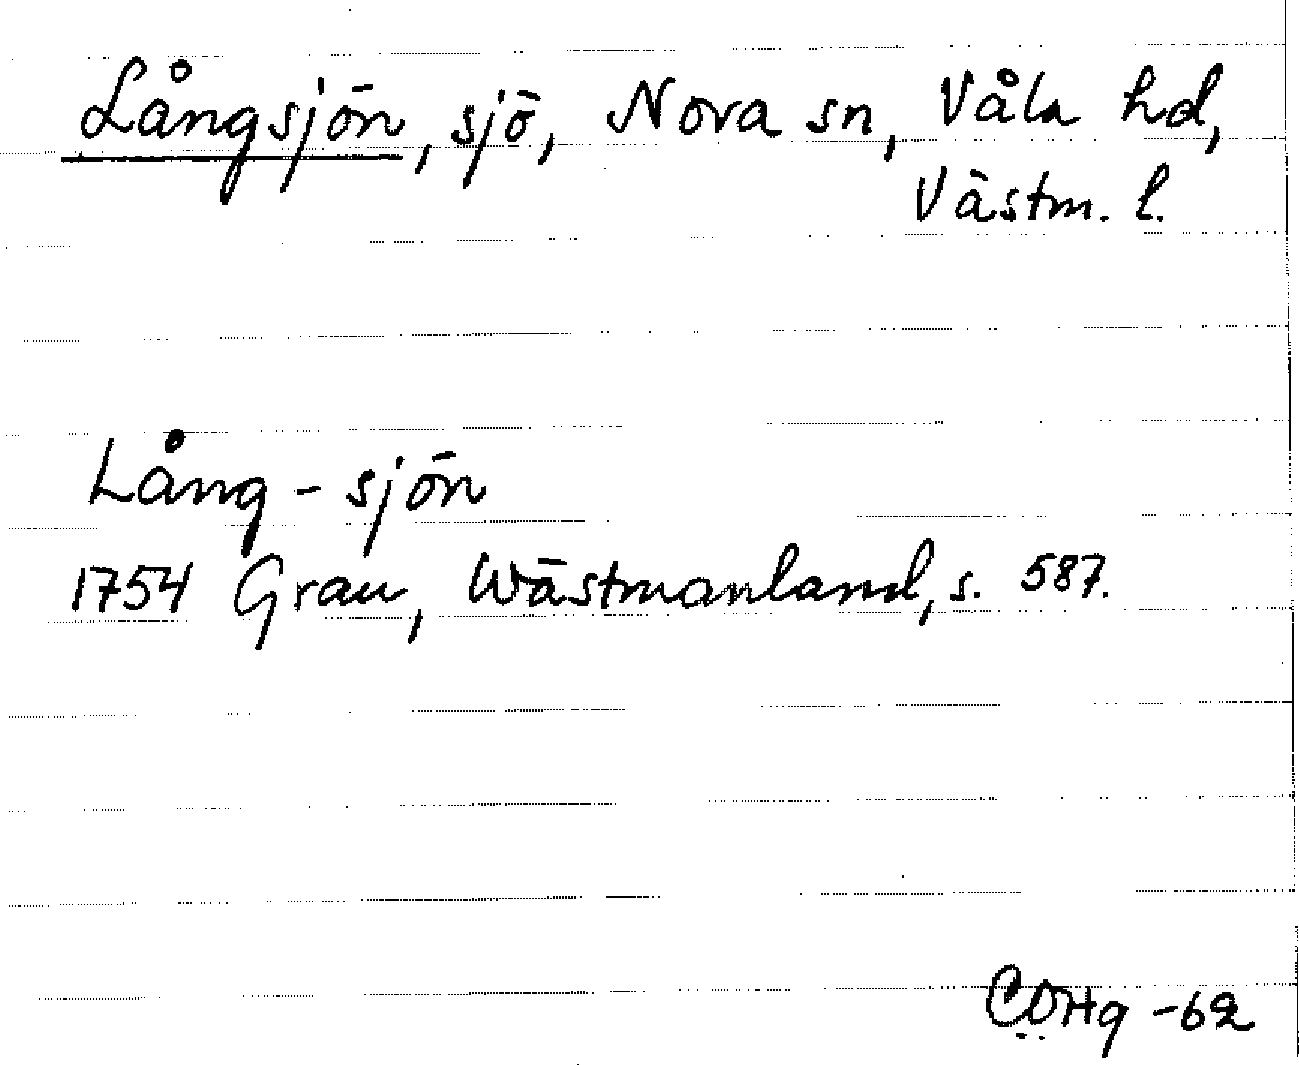 Långsjön, sjö, Nora sn, Våla hd,
Västm. l.
Lång-sjön
1754 Grau, Wästmanland, s. 587.
-62